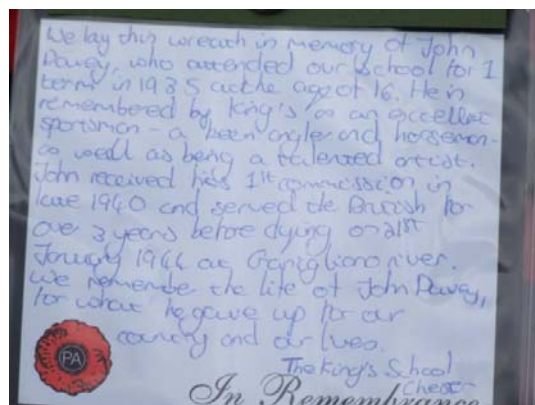 We lay this wreath in memory of John
Davey, who attended our school for 1
term in 1935 at the age of 16. He is
remembered by King's as an excellent
sportsman - a keen angler and horseman -
as well as being a talented artist.
John received his 1st commission in
late 1940 and served the British for
over 3 years before dying on 21st
January 1944 at Garigliano river.
We remember the life of John Davey,
for what he gave up for our
country and our lives.
The King's School
Chester
PA
In Remembrance